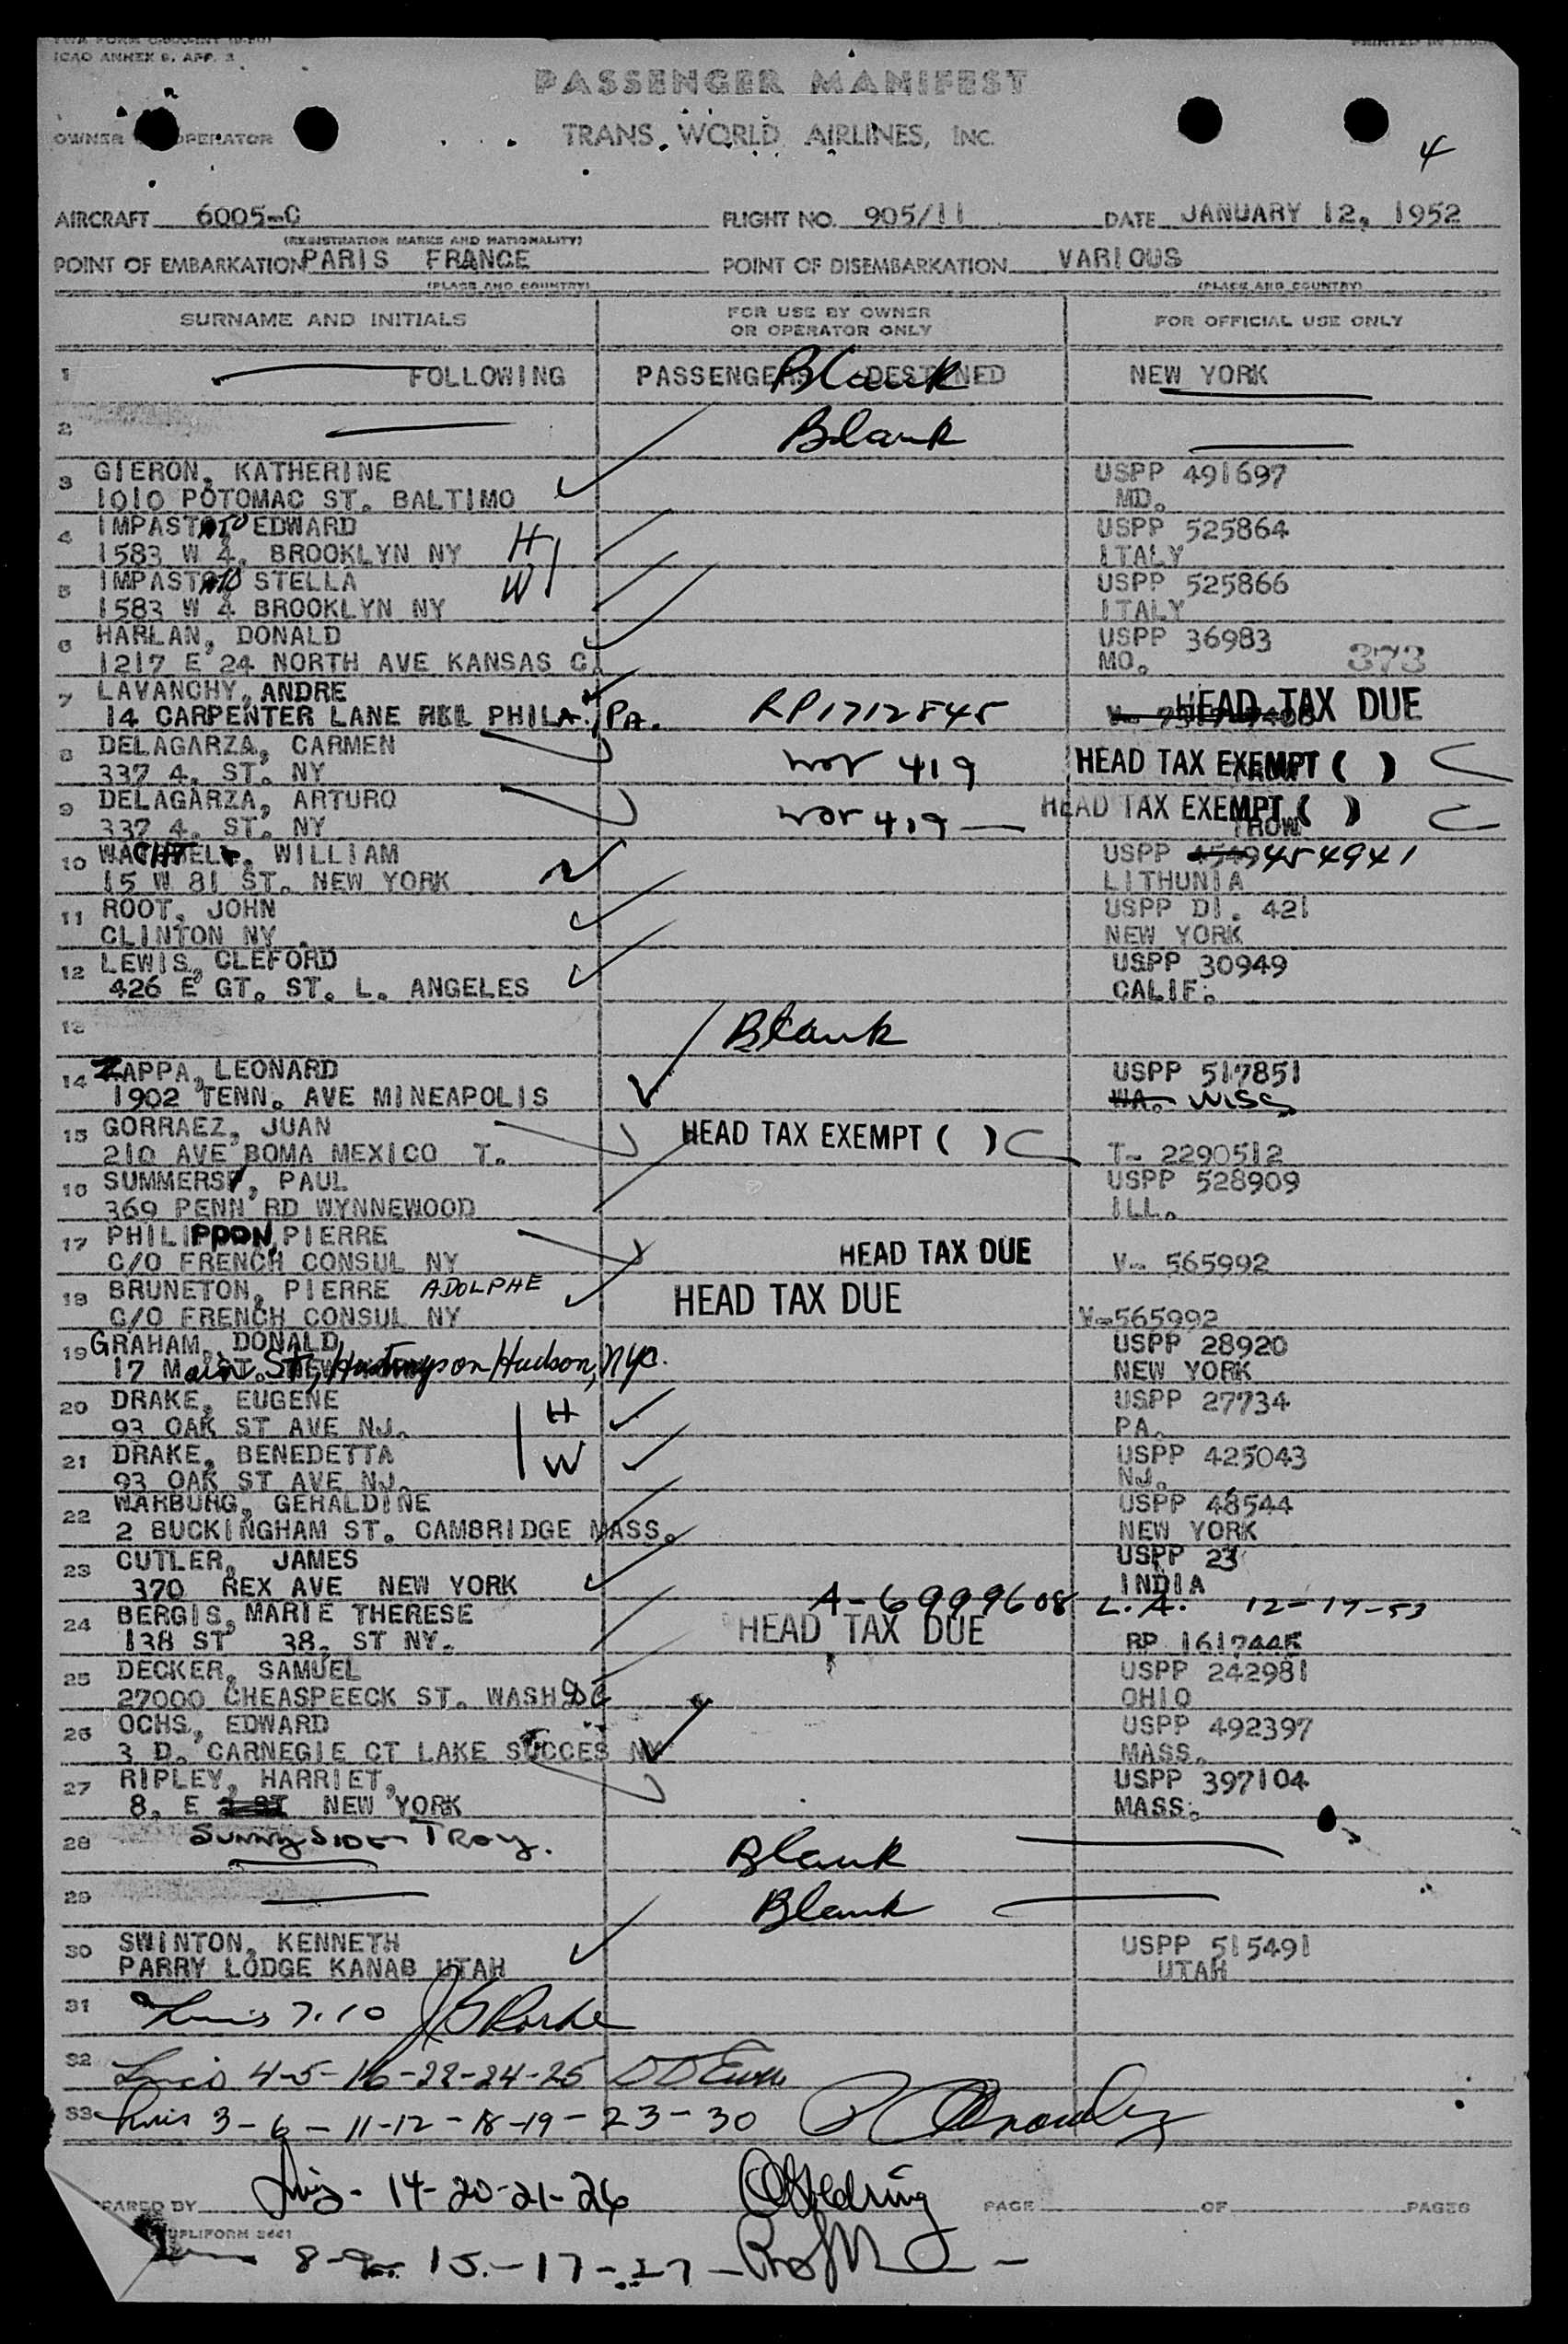 ICAO ANNEX 9, APP. 3
PASSENGER MANIFEST
OWNER OPERATOR
TRANS WORLD AIRLINES, INC.
4
AIRCRAFT 6005-C FLIGHT NO. 905/11 DATE JANUARY 12, 1952
(REGISTRATION MARKS AND NATIONALITY)
POINT OF EMBARKATION PARIS FRANCE POINT OF DISEMBARKATION VARIOUS
(PLACE AND COUNTRY) (PLACE AND COUNTRY)
SURNAME AND INITIALS FOR USE BY OWNER OR OPERATOR ONLY FOR OFFICIAL USE ONLY
1 FOLLOWING PASSENGERS DESTINED NEW YORK
Blank
2 Blank
3 GIERON, KATHERINE USPP 491697
1010 POTOMAC ST. BALTIMO MD.
4 IMPASTATO EDWARD H USPP 525864
1583 W 4, BROOKLYN NY ITALY
5 IMPASTATO STELLA W USPP 525866
1583 W 4 BROOKLYN NY ITALY
6 HARLAN, DONALD USPP 36983
1217 E 24 NORTH AVE KANSAS C. MO. 373
7 LAVANCHY, ANDRE HEAD TAX DUE
14 CARPENTER LANE PHILA., PA. RP1712545
8 DELAGARZA, CARMEN HEAD TAX EXEMPT ( )
337 4. ST. NY 419
9 DELAGARZA, ARTURO HEAD TAX EXEMPT ( )
337 4. ST. NY 419 IROW
10 WACHTEL, WILLIAM USPP 454941
15 W 81 ST. NEW YORK LITHUNIA
11 ROOT, JOHN USPP DI. 421
CLINTON NY . NEW YORK
12 LEWIS, CLEFORD USPP 30949
426 E GT. ST. L. ANGELES CALIF.
13 Blank
14 ZAPPA, LEONARD USPP 517851
1902 TENN. AVE MINEAPOLIS WA. WISC
15 GORRAEZ, JUAN HEAD TAX EXEMPT ( )
210 AVE BOMA MEXICO T. T- 2290512
16 SUMMERS, PAUL USPP 528909
369 PENN RD WYNNEWOOD ILL.
17 PHILIPPON, PIERRE HEAD TAX DUE
C/O FRENCH CONSUL NY V- 565992
18 BRUNETON, PIERRE ADOLPHE HEAD TAX DUE
C/O FRENCH CONSUL NY V-565992
19 GRAHAM, DONALD USPP 28920
17 Main St, Hastings on Hudson, NYC. NEW YORK
20 DRAKE, EUGENE H USPP 27734
93 OAK ST AVE NJ. PA.
21 DRAKE, BENEDETTA W USPP 425043
93 OAK ST AVE NJ. NJ.
22 WARBURG, GERALDINE USPP 48544
2 BUCKINGHAM ST. CAMBRIDGE MASS. NEW YORK
23 CUTLER, JAMES USPP 23
370 REX AVE NEW YORK INDIA
A-6999608 L.A. 12-17-53
24 BERGIS, MARIE THERESE HEAD TAX DUE
138 ST 38. ST NY. RP 1617445
25 DECKER, SAMUEL USPP 242981
27000 CHEASPEECK ST. WASH DC OHIO
26 OCHS, EDWARD USPP 492397
3 D. CARNEGIE CT LAKE SUCCES NY MASS.
27 RIPLEY, HARRIET, USPP 397104
8, E NEW YORK MASS.
28 SUNNYSIDE TROY. Blank
29 Blank
30 SWINTON, KENNETH USPP 515491
PARRY LODGE KANAB UTAH UTAH
31 7.10
32 4-5-16-22-24-25
33 3-6-11-12-18-19-23-30
PREPARED BY 14-20-21-26 PAGE OF PAGES
8-9- 15.-17-27-